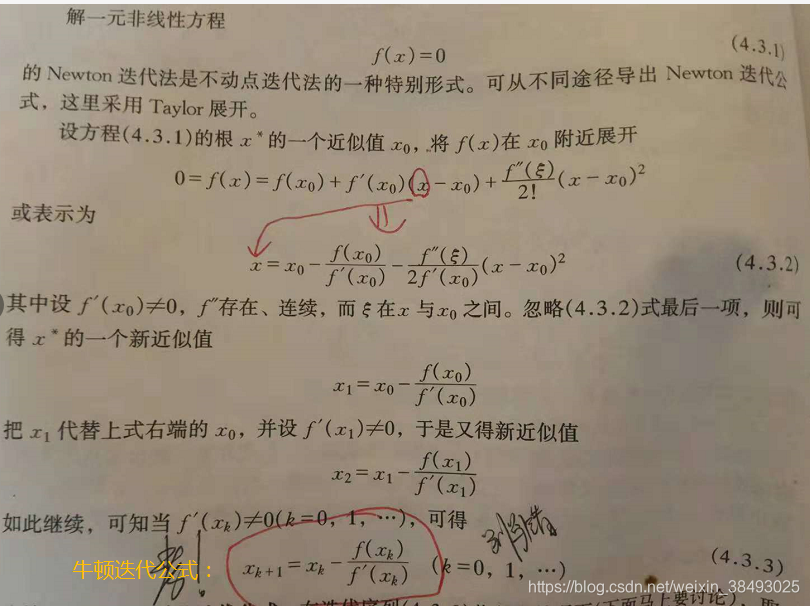 解一元非线性方程
f(x)=0 (4.3.1)
的 Newton 迭代法是不动点迭代法的一种特别形式。可从不同途径导出 Newton 迭代公
式，这里采用 Taylor 展开。
设方程(4.3.1)的根 x* 的一个近似值 x₀，将 f(x)在 x₀ 附近展开
0=f(x)=f(x₀)+f′(x₀)(x-x₀)+f″(ξ)/2!(x-x₀)²
或表示为
x=x₀-f(x₀)/f′(x₀)-f″(ξ)/2f′(x₀)(x-x₀)² (4.3.2)
其中设 f′(x₀)≠0，f″存在、连续，而 ξ 在 x 与 x₀ 之间。忽略(4.3.2)式最后一项，则可
得 x* 的一个新近似值
x₁=x₀-f(x₀)/f′(x₀)
把 x₁ 代替上式右端的 x₀，并设 f′(x₁)≠0，于是又得新近似值
x₂=x₁-f(x₁)/f′(x₁)
如此继续，可知当 f′(xₖ)≠0(k=0，1，⋯)，可得
牛顿迭代公式：
xₖ₊₁=xₖ-f(xₖ)/f′(xₖ) (k=0，1，⋯) (4.3.3)
https://blog.csdn.net/weixin_38493025